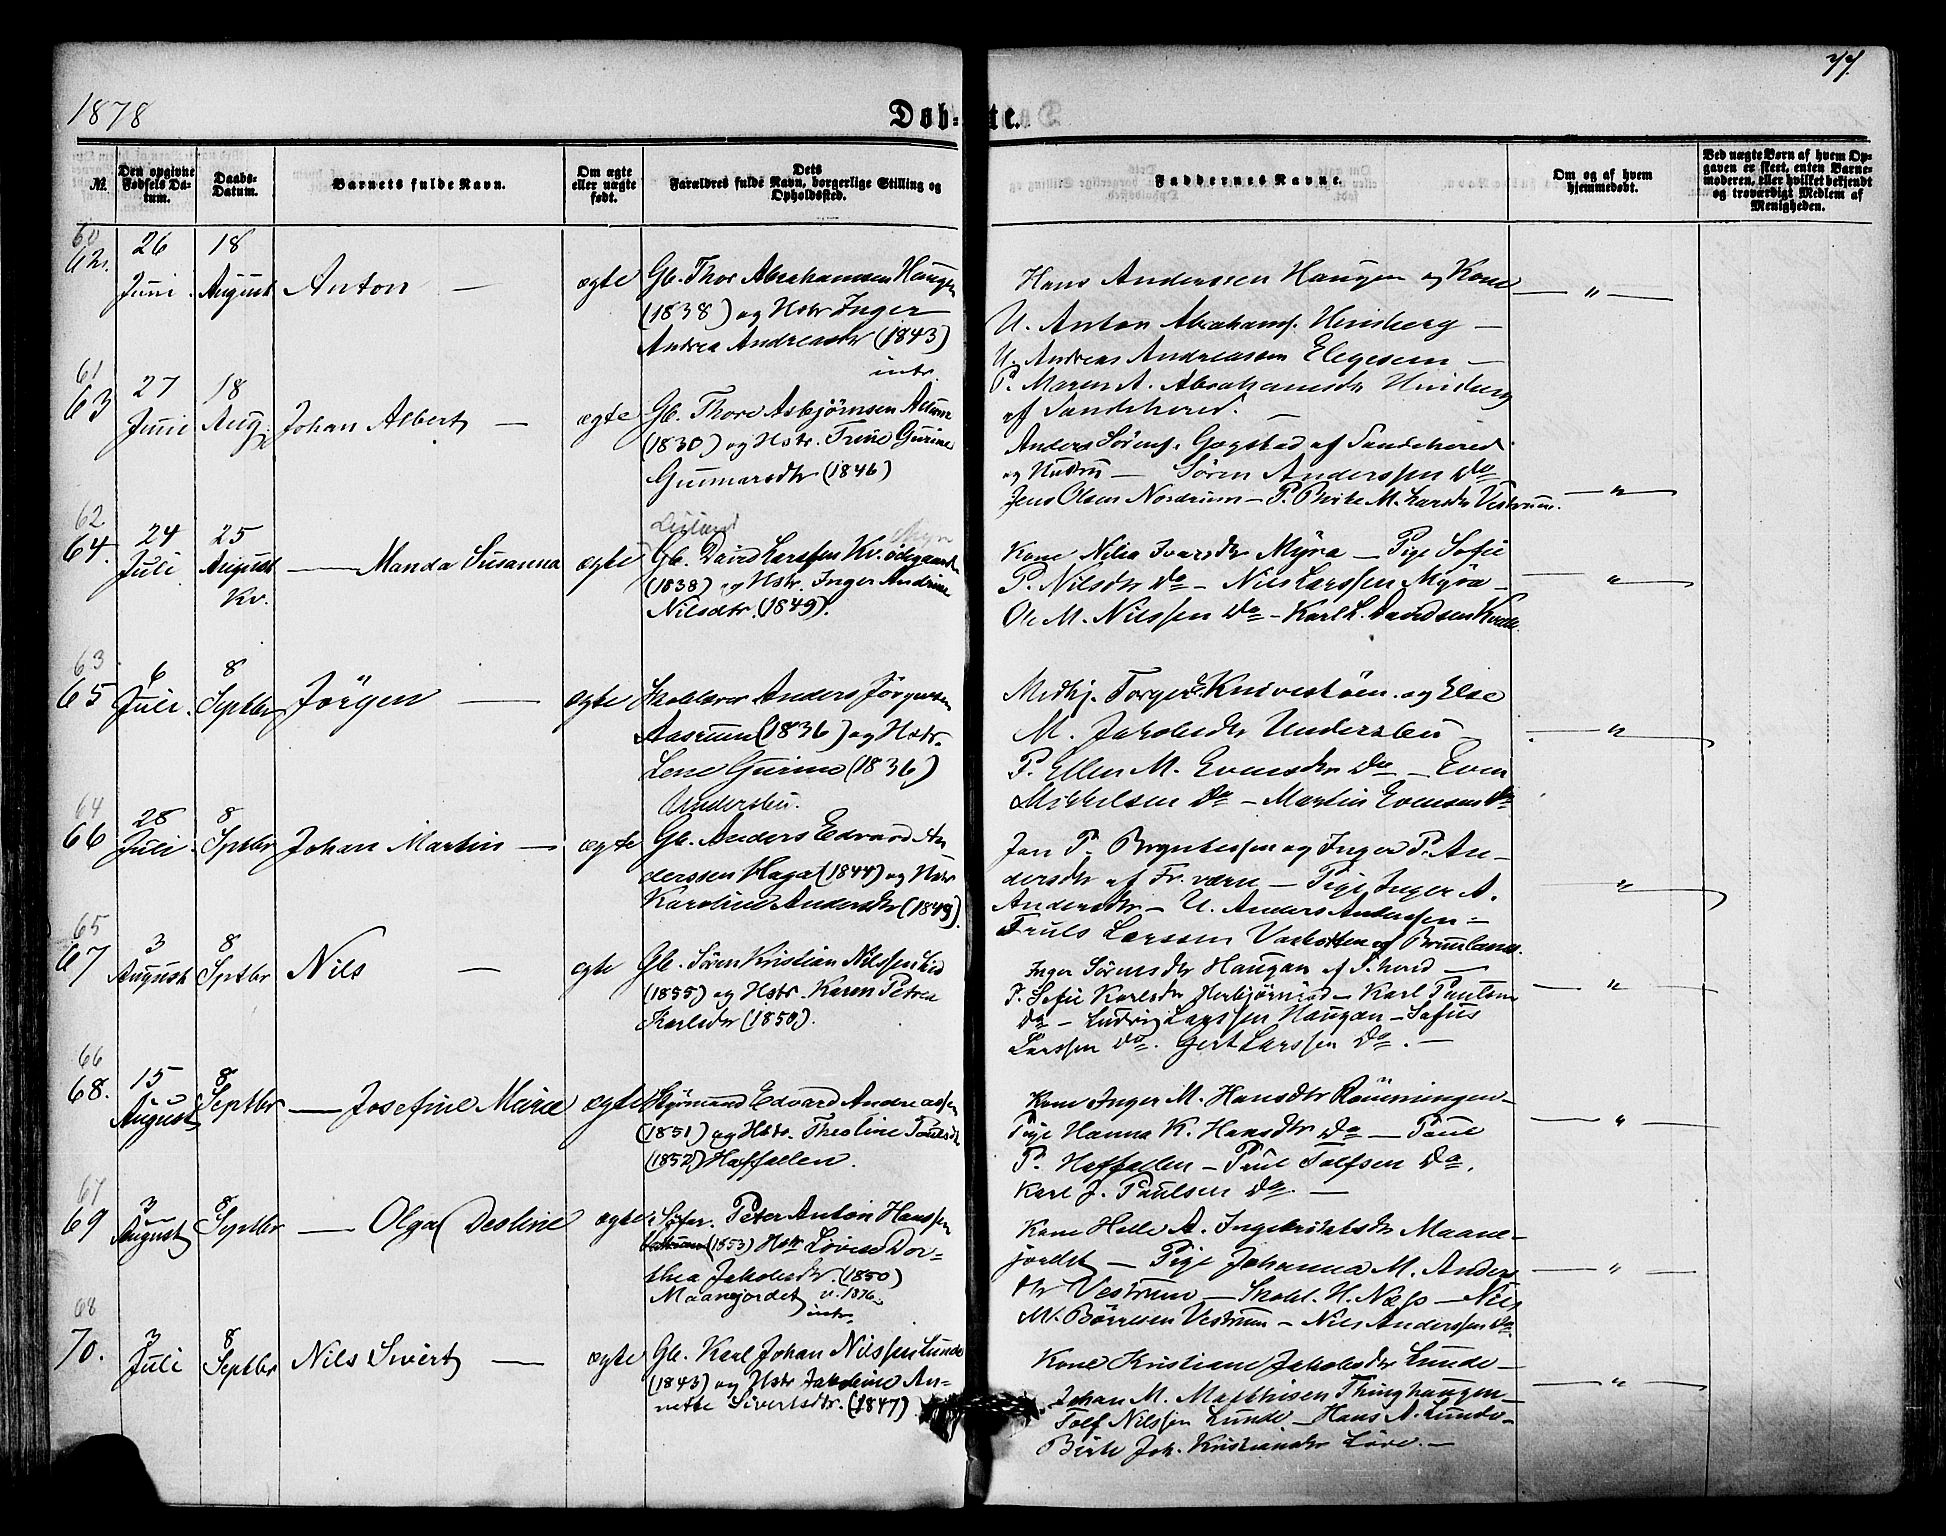 1878
77.
Døb-te.
№.
Den opgivne Fødsels Datum.
Daabs-Datum.
Barnets fulde Navn.
Om ægte eller uægte født.
Dets Forældres fulde Navn, borgerlige Stilling og Opholdssted.
Faddernes Navne.
Om og af hvem hjemmedøbt.
Ved uægte Børn af hvem Opgaven er skeet, enten Barnemoderen, eller hvilket bekjendt og troværdigt Medlem af Menigheden.
60
62. 26 Juni 18 August Anton — ægte
Gb. Thor Abrahamsen Haugen
(1838) og Hstr Inger
Andrea Andreasdtr (1843)
intr.
Hans Anderssen Haugen og Kone
U. Anton Abrahams. Hinsberg —
U. Andreas Andreassen Elgesem —
P. Maren A. Abrahamsdtr Hinsberg
af Sandehered. —
— " —
61
63 27 Juni 18 Aug. Johan Albert — ægte
Gb. Thore Asbjørnsen Aulune
(1830) og Hstr. Trine Gurine
Gunnarsdtr (1846)
Anders Sørens. Gogstad af Sandehered
og Hustru — Søren Anderssen Do
Jens Olsen Nordrum — P. Birte M. Larsdtr Vestrum.
— " —
62
64. 24 Juli 25 August Kv. — Manda Susanna ægte
Gb. David Larssen Kv. Ødegaarden
(1838) og Hstr. Inger Andrine
Nilsdtr. (1849).
Kone Nilia Ivarsdtr Myra — Pige Sofie
P. Nilsdtr Do — Nils Larssen Myra —
Ole M. Nilssen Do — Karl L. Davidsen Kvelle.
— " —
63
65 6 Juli 8 Septbr Jörgen — ægte
Skolelærer Anders Jörgensen
Aasrum (1836) og Hstr.
Lene Gurine (1836)
Undersbu.
Medhj. Torger Knivestöen og Else
M. Jakobsdtr Undersbu —
P. Ellen M. Evensdtr Do — Even
Mikkelsen Do — Martin Evensen Do
— " —
64
66 28 Juli 8 Sptbr Johan Martin — ægte
Gb. Anders Edvard An-
derssen Haga (1844) og Hstr
Karoline Andersdtr (1849).
Jan P. Bryntessen og Inger P. An-
dersdtr af Fr. værn — Pige Inger A.
Andersdtr — U. Anders Anderssen —
Truls Larssen Varbotten af Brunlanes.
— " —
65
67 3 August 8 Sptbr Nils — egte
Gb. Søren Kristian Nilssen Lid
(1855) og Hstr. Karen Petrea
Karlsdtr (1850).
Inger Sørensdtr Haugan af S. hered —
P. Sofie Karlsdtr Herbjörnrød — Karl Paulsen
Do — Ludvig Larssen Haugan — Sofus
Larssen Do. Gert Larssen Do. —
— " —
66
68. 15 August 8 Septbr — Josefine Marie ægte
Skjömand Edvard Andreassen
(1851) og Hstr. Theoline Paulsdtr
(1852) Hoffallen.
Kone Inger M. Hansdtr Rönningen —
Pige Hanna K. Hansdtr Do — Paul
P. Hoffallen — Paul Tolfsen Do.
Karl J. Paulsen Do. —
— " —
67
69 3 August 8 Septbr — Olga Desline ægte
Søfar. Peter Anton Hanssen
(1853) Hstr Lovise Dor-
thea Jakobsdtr. (1850)
Maanejordet v. 1876.
intr.
Kone Helle A. Ingebretsdtr Maane-
jordet — Pige Johanna M. Anders
dtr Vestrum — Skohl. H. Næss — Nils
M. Börresen Vestrum — Nils Anderssen Do
— " —
68
70. 3 Juli 8 Septbr Nils Sivert — ægte
Gb. Karl Johan Nilssen Lunde
(1843) og Hstr Jakobine An-
nette Sivertsdtr. (1847)
Kone Kristiane Jakobsdtr Lunde —
Johan M. Matthisen Thinghaugen —
Tolf Nilssen Lunde — Hans A. Lunde —
Birte Joh. Kristiansdtr Löve. —
— " —